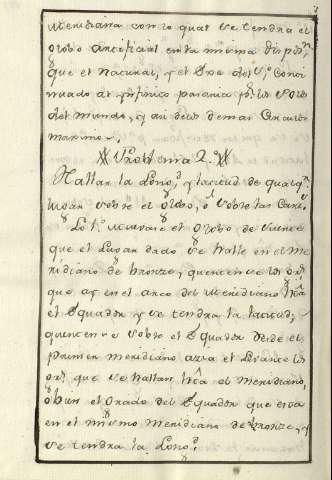 Meridiana con lo qual se tendra el
Globo artificial en la misma dispon.
que el Natural, y el Exe del Po. Conti
nuado al ynfinito pasaria pr. los Polos
del Mundo, y asi de los demas Circulos
maximos.
Problema 2.
Hallar la Long.d y latitud de qualq.r
lugar sobre el Globo, o sobre las Cartas
Lo 1.o Muevase el Globo de suerte
que el Lugar dado se halle en el Me
ridiano de bronze, y quentense los gr.s
que ay en el arco del Meridiano hta
el Equador y se tendra la latitud;
quentense sobre el Equador desde el
primer meridiano acia el Levante los
gr.s que se hallan hta el Meridiano,
o bien el Grado del Equador que esta
en el mismo Meridiano de bronze, y
se tendra la Long.d